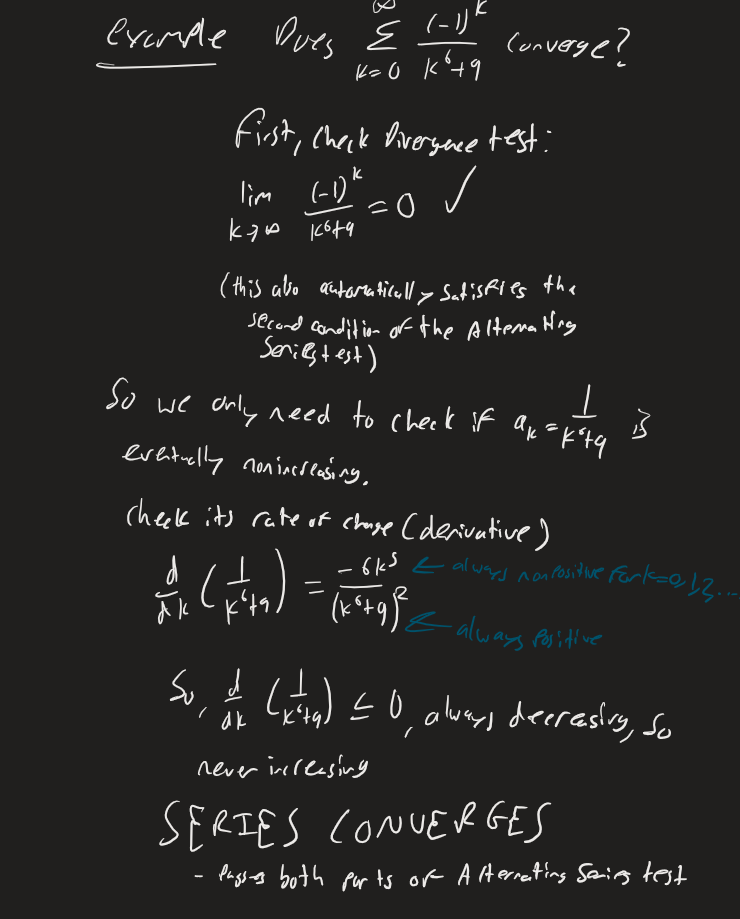 Example Does ∑_{k=0}^{∞} (-1)^k / (k^6+9) converge?
First, check Divergence test:
lim_{k→∞} (-1)^k / (k^6+9) = 0 ✓
(this also automatically satisfies the
second condition of the Alternating
Series test)
So we only need to check if a_k = 1/(k^6+9) is
eventually nonincreasing.
Check its rate of change (derivative)
d/dk (1/(k^6+9)) = -6k^5 / (k^6+9)^2 ← always nonpositive for k=0,1,2,...
← always positive
So, d/dk (1/(k^6+9)) ≤ 0, always decreasing, so
never increasing
SERIES CONVERGES
- passes both parts of Alternating Series test